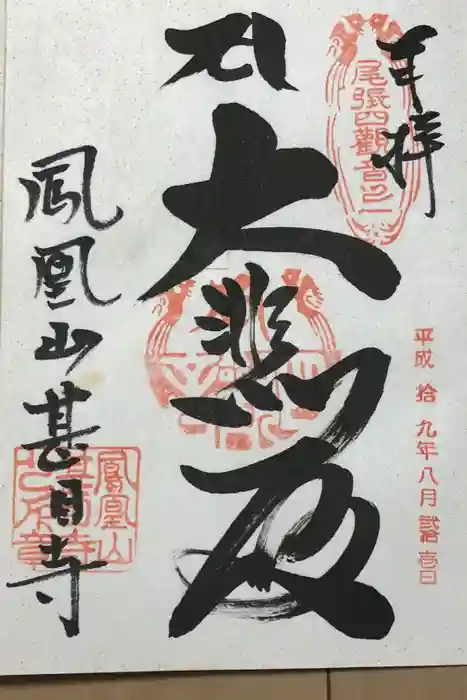 奉拝
尾張四観音之一
平成拾九年八月弐拾壱日
大悲殿
鳳凰山甚目寺
鳳凰山